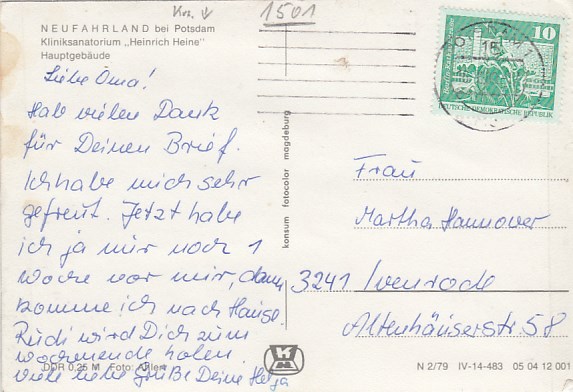 Krs. ↓
1501
NEUFAHRLAND bei Potsdam
Kliniksanatorium „Heinrich Heine"
Hauptgebäude
Liebe Oma!
Hab vielen Dank
für Deinen Brief.
Ich habe mich sehr
gefreut. Jetzt habe
ich ja nur noch 1
Woche vor mir, dann
komme ich nach Hause
Rudi wird Dich zum
Wochenende holen.
viele liebe Grüße Deine Helga
DDR 0,25 M Foto: Ahlert
konsum fotocolor magdeburg
10
DEUTSCHE DEMOKRATISCHE REPUBLIK
15
Frau
Martha Hannover
3241 Ivenrode
Altenhäuserstr. 58
N 2/79 IV-14-483 05 04 12 001